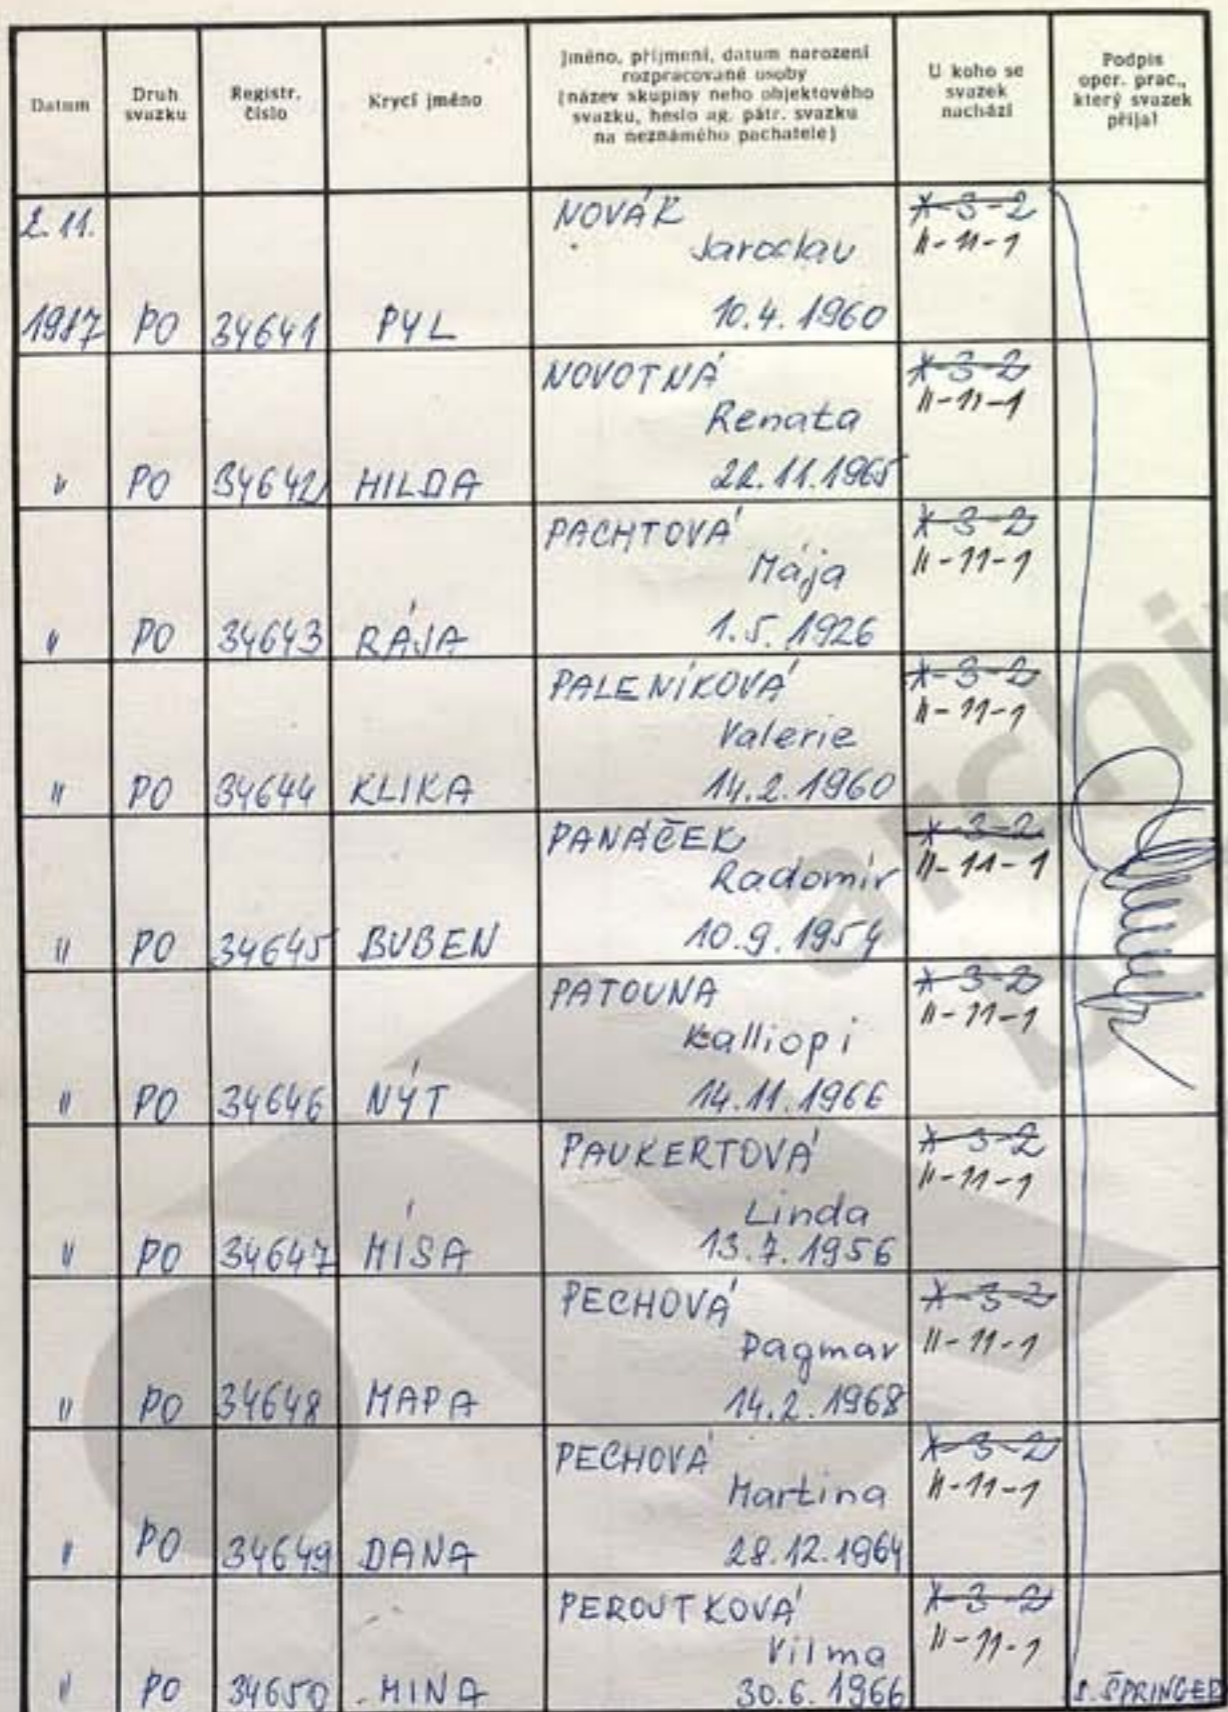 Datum
Druh
svazku
Registr.
číslo
Krycí jméno
Jméno, příjmení, datum narození
rozpracované osoby
(název skupiny nebo objektového
svazku, heslo ag. pátr. svazku
na neznámého pachatele)
U koho se
svazek
nachází
Podpis
oper. prac.,
který svazek
přijal
2.11.
1987 PO 34641 PYL
NOVÁK
Jaroslav
10.4.1960
X-3-2
II-11-1
" PO 34642 HILDA
NOVOTNÁ
Renata
22.11.1965
X-3-2
II-11-1
" PO 34643 RÁJA
PACHTOVÁ
Mája
1.5.1926
X-3-2
II-11-1
" PO 34644 KLIKA
PALENÍKOVÁ
Valerie
14.2.1960
X-3-2
II-11-1
" PO 34645 BUBEN
PANÁČEK
Radomír
10.9.1954
X-3-2
II-11-1
" PO 34646 NÝT
PATOUNA
Kalliopi
14.11.1966
X-3-2
II-11-1
" PO 34647 MÍSA
PAUKERTOVÁ
Linda
13.7.1956
X-3-2
II-11-1
" PO 34648 MAPA
PECHOVÁ
Dagmar
14.2.1968
X-3-2
II-11-1
" PO 34649 DANA
PECHOVÁ
Martina
28.12.1964
X-3-2
II-11-1
" PO 34650 MINA
PEROUTKOVÁ
Vilma
30.6.1966
X-3-2
II-11-1
S. ŠPRINGER